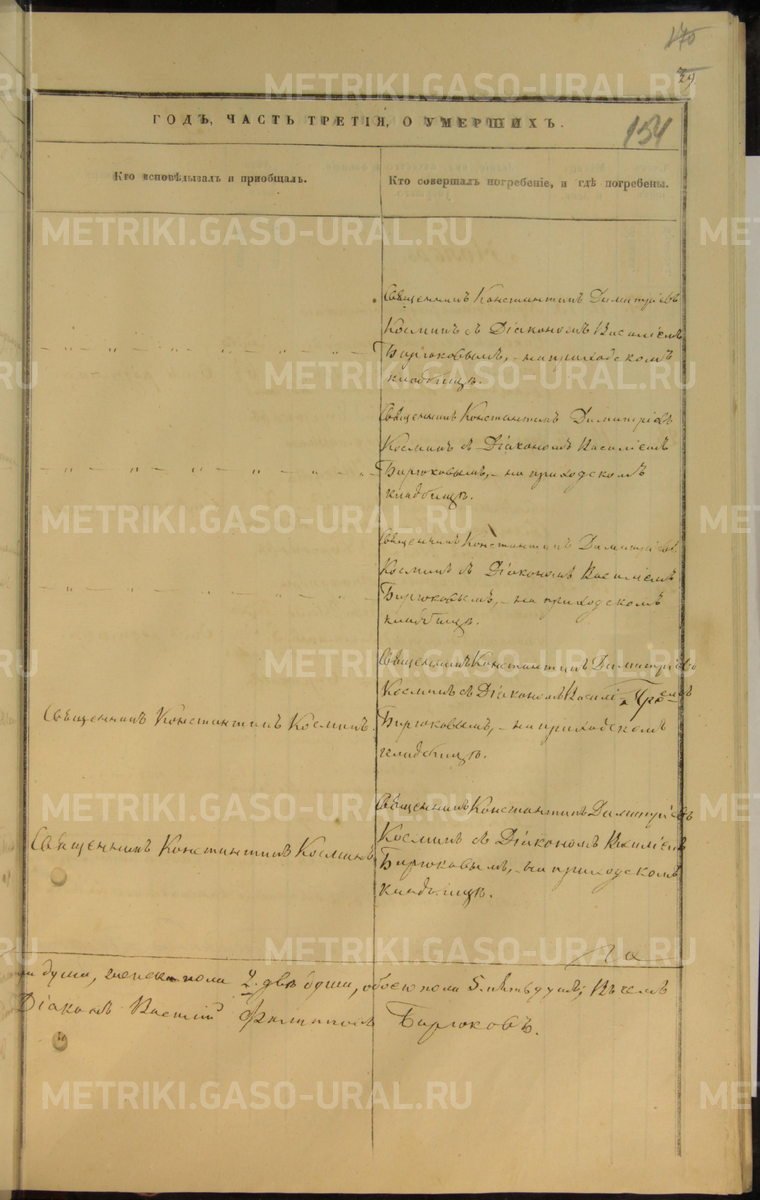 170
29
ГОДЪ, ЧАСТЬ ТРЕТІЯ, О УМЕРШИХЪ.
154
Кто исповѣдывалъ и пріобщалъ.
Кто совершалъ погребеніе, и гдѣ погребены.
Священникъ Константинъ Димитріевъ
Косминъ съ Діакономъ Василіемъ
Бирюковымъ, – на приходскомъ
кладбищѣ.
Священникъ Константинъ Димитріевъ
Косминъ съ Діакономъ Василіемъ
Бирюковымъ, – на приходскомъ
кладбищѣ.
Священникъ Константинъ Димитріевъ
Косминъ съ Діакономъ Василіемъ
Бирюковымъ, – на приходскомъ
кладбищѣ.
Священникъ Константинъ Косминъ.
Священникъ Константинъ Димитріевъ
Косминъ съ Діакономъ
Бирюковымъ, – на приходскомъ
кладбищѣ.
Священникъ Константинъ Косминъ.
Священникъ Константинъ Димитріевъ
Косминъ съ Діакономъ Василіемъ
Бирюковымъ, – на приходскомъ
кладбищѣ.
души, женска пола 2. двѣ души, обоего пола 5. пять душъ; Въ чемъ
Діаконъ Василій Бирюковъ.
METRIKI.GASO-URAL.RU